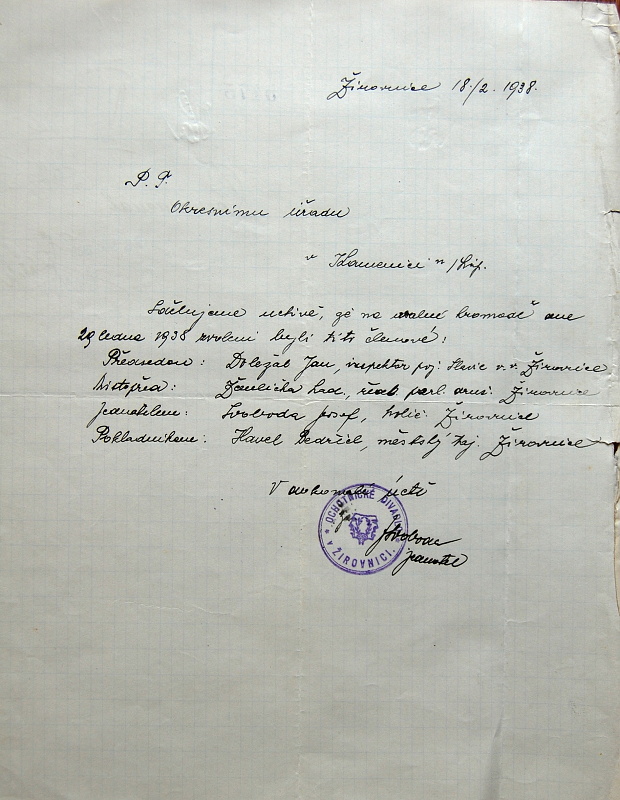 Žirovnice 18./2. 1938.
P. T.
Okresnímu úřadu
v Kamenici n/Lip.
Sdělujeme uctivě, že na valní hromadě dne
29 ledna 1938 zvoleni byli tito členové:
Předsedou: Doležal Jan, inspektor poj. Slavie v.v. Žirovnice
Místopřed: Lad., Žirovnice
Jednatelem: Svoboda Josef, holič. Žirovnice
Pokladníkem: Havel Bedřich, městský taj. Žirovnice
V dokonalé úctě
OCHOTNICKÉ DIVADLO
V ŽIROVNICI.
Svoboda
jednatel